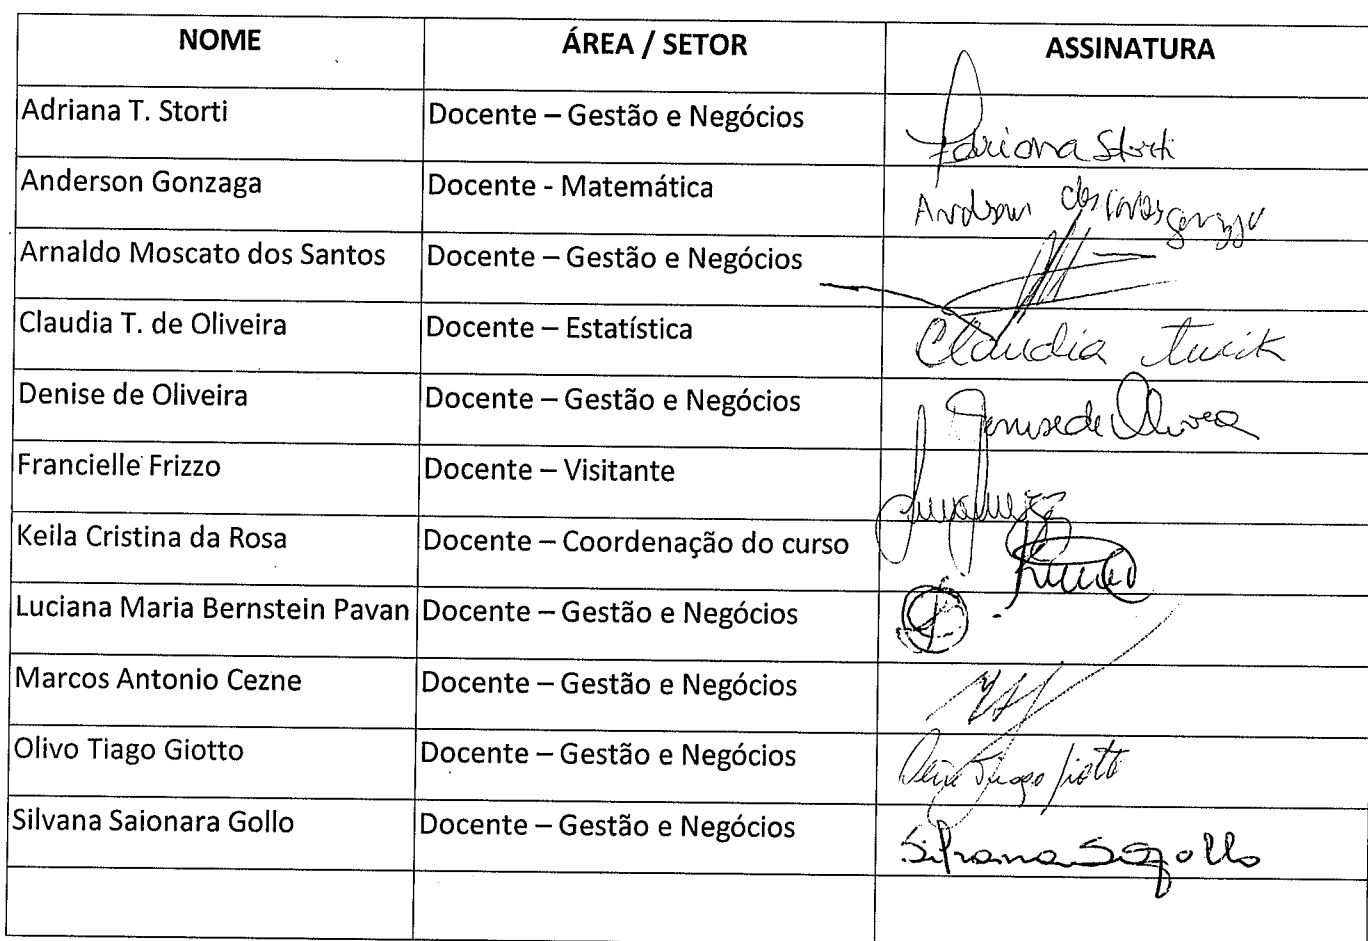 NOME ÁREA / SETOR ASSINATURA
Adriana T. Storti Docente – Gestão e Negócios Adriana Storti
Anderson Gonzaga Docente - Matemática Anderson
Arnaldo Moscato dos Santos Docente – Gestão e Negócios
Claudia T. de Oliveira Docente – Estatística Claudia
Denise de Oliveira Docente – Gestão e Negócios Denise de Oliveira
Francielle Frizzo Docente – Visitante
Keila Cristina da Rosa Docente – Coordenação do curso
Luciana Maria Bernstein Pavan Docente – Gestão e Negócios
Marcos Antonio Cezne Docente – Gestão e Negócios
Olivo Tiago Giotto Docente – Gestão e Negócios Tiago Giotto
Silvana Saionara Gollo Docente – Gestão e Negócios Silvana S Gollo